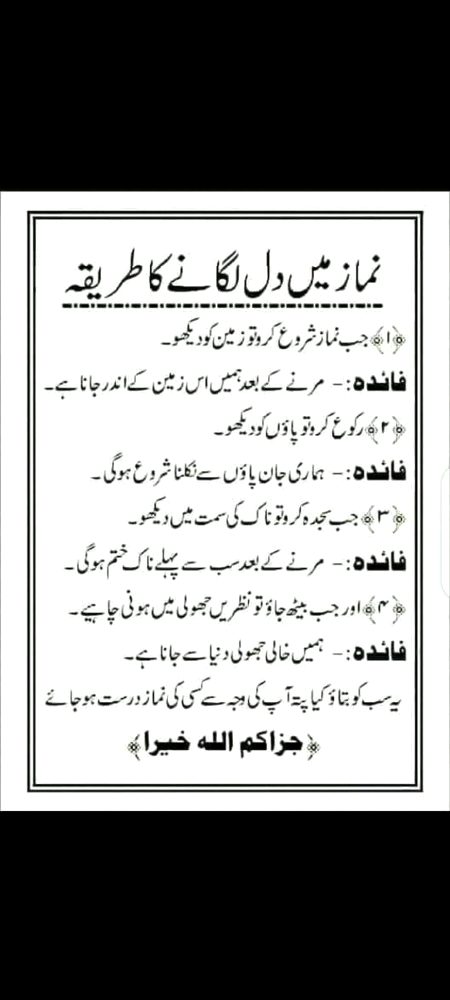 نماز میں دل لگانے کا طریقہ
﴿۱﴾ جب نماز شروع کرو تو زمین کو دیکھو۔
فائدہ:- مرنے کے بعد ہمیں اس زمین کے اندر جانا ہے۔
﴿۲﴾ رکوع کرو تو پاؤں کو دیکھو۔
فائدہ:- ہماری جان پاؤں سے نکلنا شروع ہوگی۔
﴿۳﴾ جب سجدہ کرو تو ناک کی سمت میں دیکھو۔
فائدہ:- مرنے کے بعد سب سے پہلے ناک ختم ہوگی۔
﴿۴﴾ اور جب بیٹھ جاؤ تو نظریں جھولی میں ہونی چاہیے۔
فائدہ:- ہمیں خالی جھولی دنیا سے جانا ہے۔
یہ سب کو بتاؤ کیا پتہ آپ کی وجہ سے کسی کی نماز درست ہو جائے
﴿جزاکم اللہ خیرا﴾